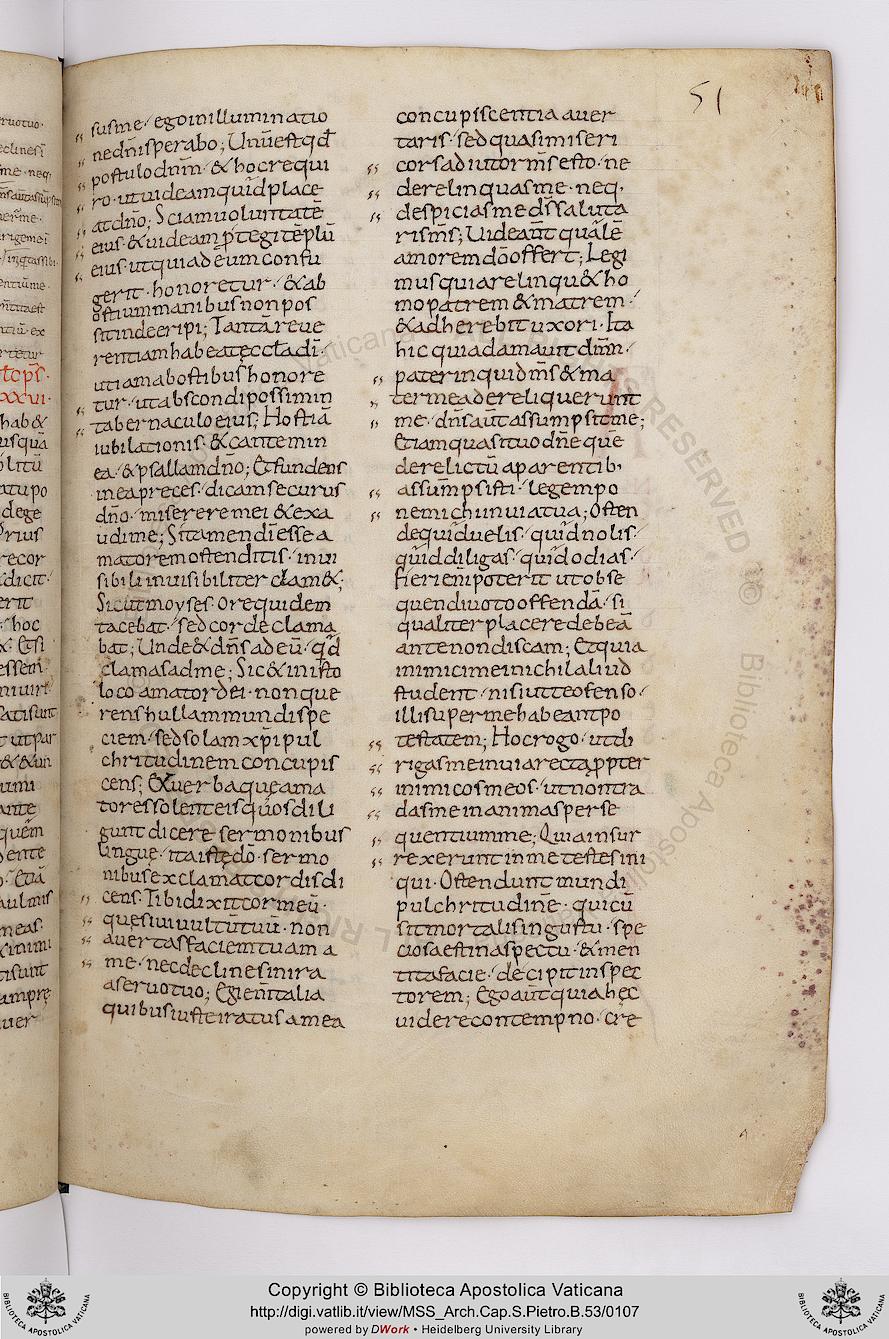 51
susme · ego in illuminatio
ne dn̄i sperabo; Unū est qd̄
postulo dn̄m · & hoc requi
ro · ut uideam quid place
at dn̄o; Sciam uoluntatē
eius · & uideam ꝓtegi tēplū
eius · ut qui ad eum confu
gerit · honoretur · & ab
ostium manibus non pos
sit inde eripi; Tantā reue
rentiam habeat ęccl̄a di ·
uti iam ab ostibus honore
tur · ut abscondi possim in
tabernaculo eius; Hostiā
iubilationis · & cantem in
ea · & psallam dn̄o; Et fundens
in ea preces · dicam securus
dn̄o · miserere mei & exa
udi me; Si tamen di esse a
matorem ostenditis · inui
sibili inuisibiliter clam&;
Sicut moyses · ore quidem
tacebat · sed corde clama
bat; Unde & dn̄s ad eū · qd
clamas ad me; Sic & in isto
loco amator dei · non que
rens hullam mundi spe
ciem · sed solam xp̄i pul
chritudinem concupis
cens; & uerba que ama
tores solent eis quos dili
gunt dicere sermonibus
lingue · ita iste do · sermo
nibus exclamat cordis di
cens · Tibi dixit cor meū ·
quesiui uultū tuū · non
auertas faciem tuam a
me · nec declines in ira
a seruo tuo; Egi enī talia
quibus iuste iratus a mea
concupiscentia auer
taris · sed quasi miseri
cors adiutor m̄s esto · ne
derelinquas me · neq·
despicias me d̄s saluta
ris m̄s; Uideant quale
amorem do offert; Legi
mus quia relinqu& ho
mo patrem & matrem ·
& adherebit uxori · Ita
hic quia damauit dnm ·
pater inquid m̄s & ma
ter mea dereliquerunt
me · dn̄s aut̄ assumpsit me;
Etiam quasi tuo dn̄e quē
derelictū a parentib·
assūmpsisti · legem po
ne michi in uia tua; Osten
de quid uelis · quid nolis ·
quid diligas · quid odias ·
Fieri enī poterit ut obse
quendi uoto offendā · si
qualiter placere debeā
ante non discam; Et quia
inimici mei nichil aliud
student · nisi ut te ofenso ·
illi super me habeant po
testatem; Hoc rogo · ut di
rigas me in uia recta ꝓpter
inimicos meos · ut non tra
das me in animas perse
quentium me; Quia insur
rexerunt in me testes ini
qui · Ostendunt mundi
pulchritudine · qui cū
sit mortalis in gustu · spe
ciosa est in aspectu · & men
tita facie · decipit inspec
torem; Ego aut̄ quia hęc
uidere contempno · cre
Copyright © Biblioteca Apostolica Vaticana
http://digi.vatlib.it/view/MSS_Arch.Cap.S.Pietro.B.53/0107
powered by DWork • Heidelberg University Library
BIBLIOTECA APOSTOLICA VATICANA
BIBLIOTECA APOSTOLICA VATICANA